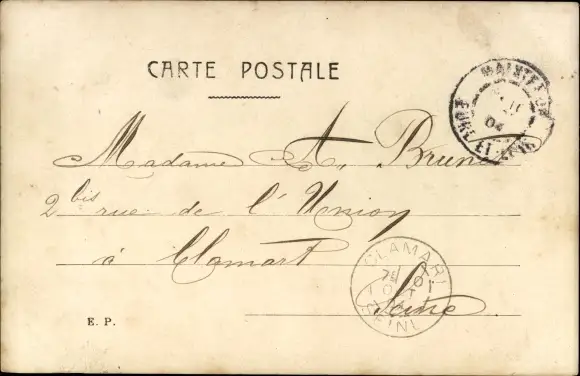 CARTE POSTALE
MAINTENON
04
EURE ET LOIR
Madame A. Brune
2 bis rue de l'Union
à Clamart
Seine
CLAMART
OCT
SEINE
E. P.